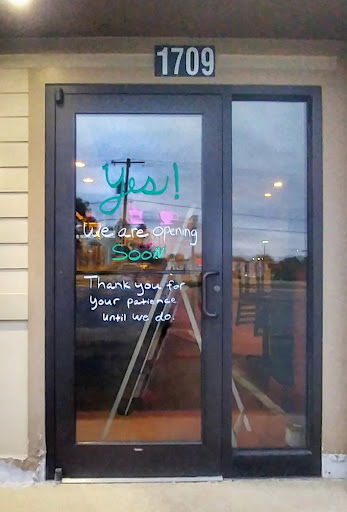 1709
Yes!
We are opening
Soon
Thank you for
your patience
until we do.